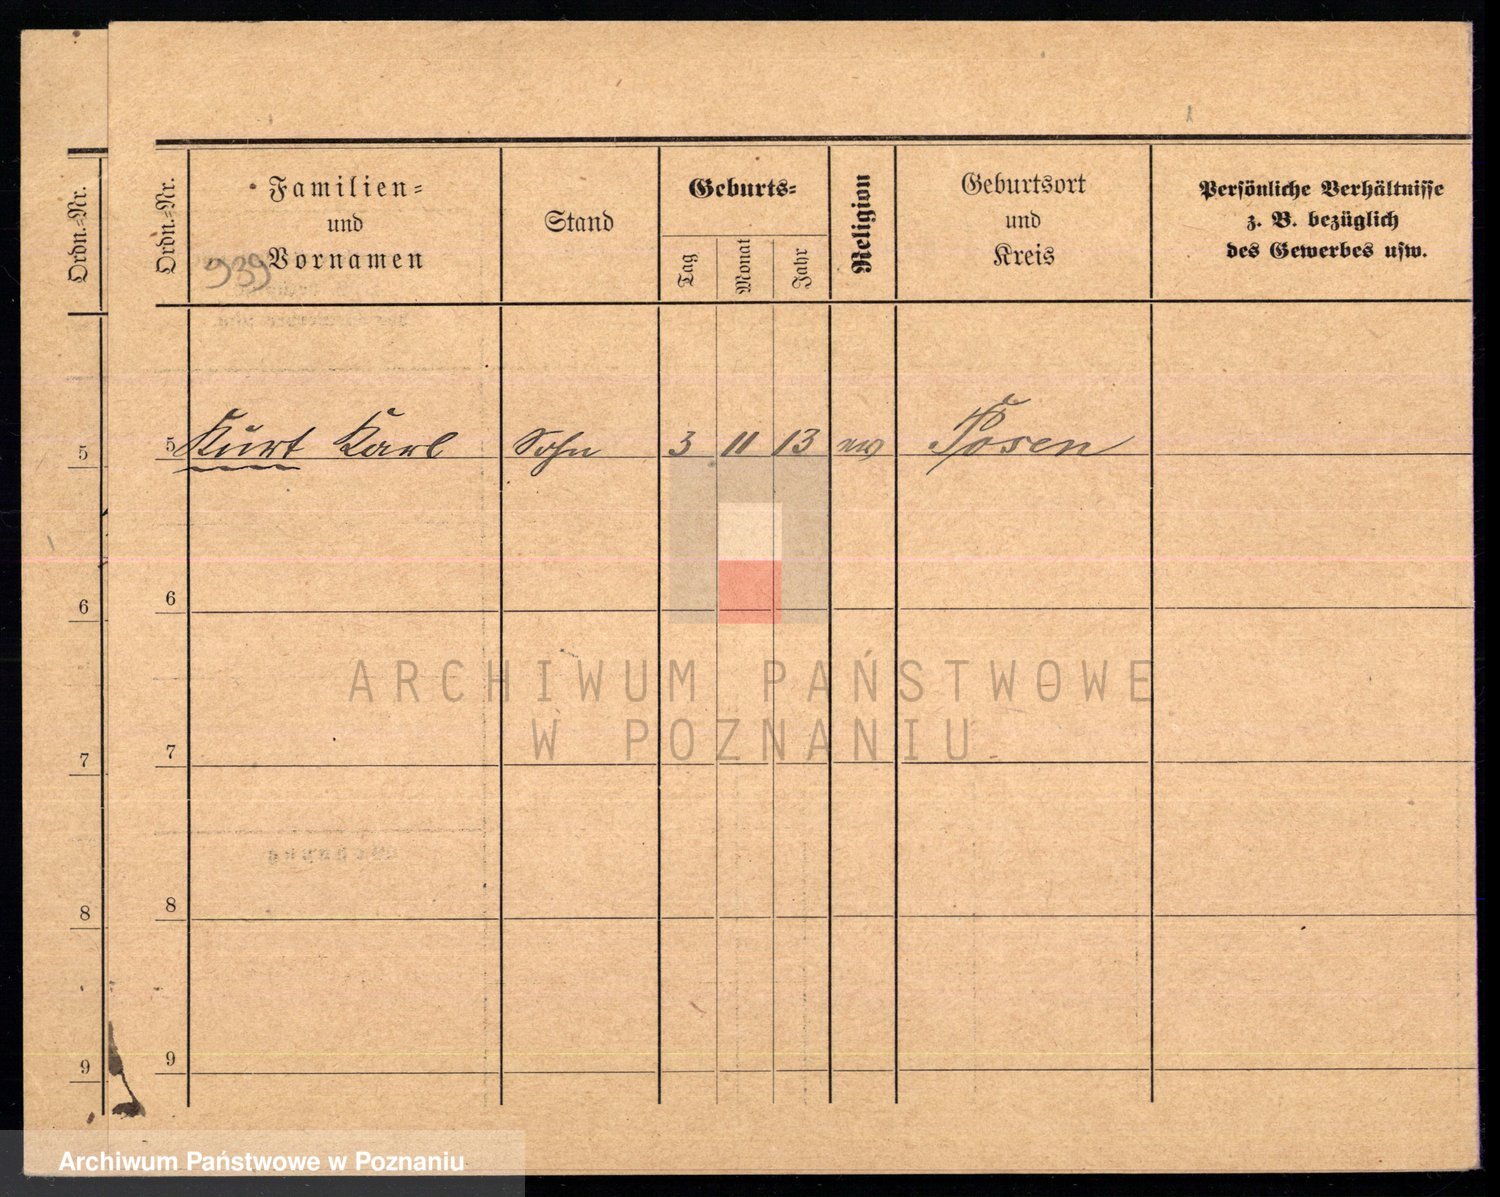 Ordn.-Nr.
Ordn.-Nr.
Familien-
und
Vornamen
939
Stand
Geburts-
Tag
Monat
Jahr
Religion
Geburtsort
und
Kreis
Persönliche Verhältnisse
z. B. bezüglich
des Gewerbes usw.
5
5 Kurt Karl Sohn 3 11 13 ev Posen
6
6
ARCHIWUM PAŃSTWOWE
W POZNANIU
7
7
8
8
9
9
Archiwum Państwowe w Poznaniu